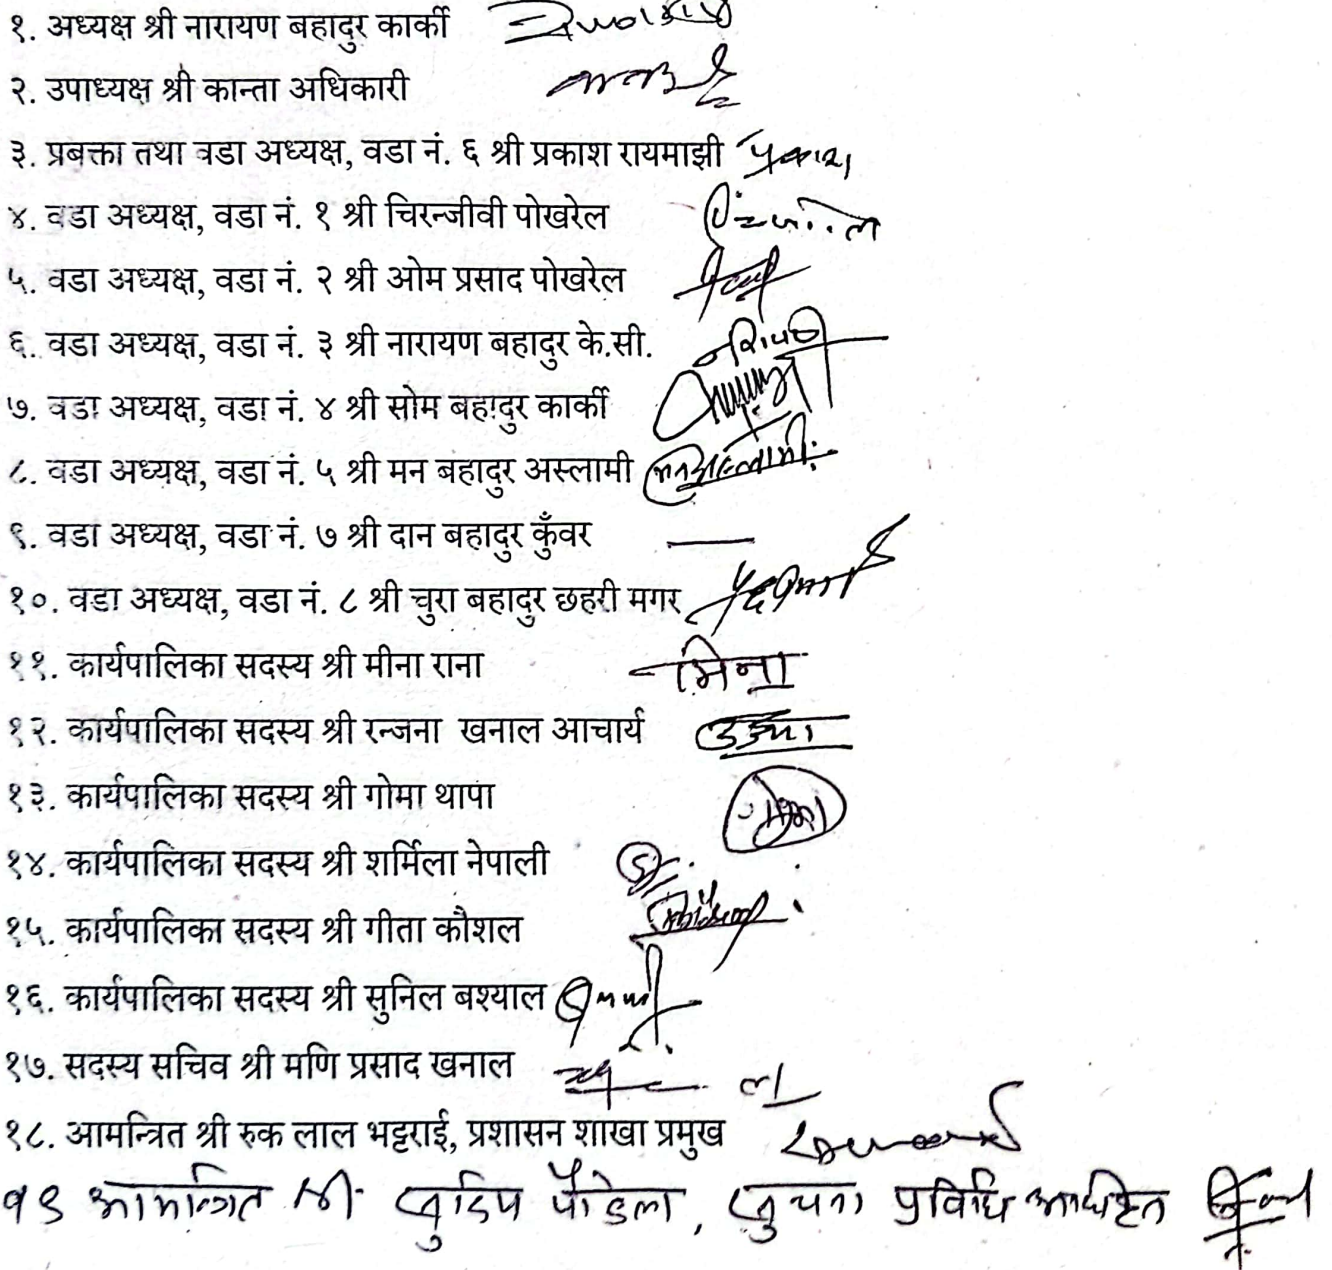 १. अध्यक्ष श्री नारायण बहादुर कार्की
२. उपाध्यक्ष श्री कान्ता अधिकारी
३. प्रबक्ता तथा वडा अध्यक्ष, वडा नं. ६ श्री प्रकाश रायमाझी प्रकाश
४. वडा अध्यक्ष, वडा नं. १ श्री चिरन्जीवी पोखरेल
५. वडा अध्यक्ष, वडा नं. २ श्री ओम प्रसाद पोखरेल
६. वडा अध्यक्ष, वडा नं. ३ श्री नारायण बहादुर के.सी.
७. वडा अध्यक्ष, वडा नं. ४ श्री सोम बहादुर कार्की
८. वडा अध्यक्ष, वडा नं. ५ श्री मन बहादुर अस्लामी
९. वडा अध्यक्ष, वडा नं. ७ श्री दान बहादुर कुँवर
१०. वडा अध्यक्ष, वडा नं. ८ श्री चुरा बहादुर छहरी मगर
११. कार्यपालिका सदस्य श्री मीना राना मिना
१२. कार्यपालिका सदस्य श्री रन्जना खनाल आचार्य
१३. कार्यपालिका सदस्य श्री गोमा थापा
१४. कार्यपालिका सदस्य श्री शर्मिला नेपाली
१५. कार्यपालिका सदस्य श्री गीता कौशल
१६. कार्यपालिका सदस्य श्री सुनिल बश्याल
१७. सदस्य सचिव श्री मणि प्रसाद खनाल
१८. आमन्त्रित श्री रुक लाल भट्टराई, प्रशासन शाखा प्रमुख
१९ आमन्त्रित श्री सुदिप पौडेल, सुचना प्रविधि अधिकृत